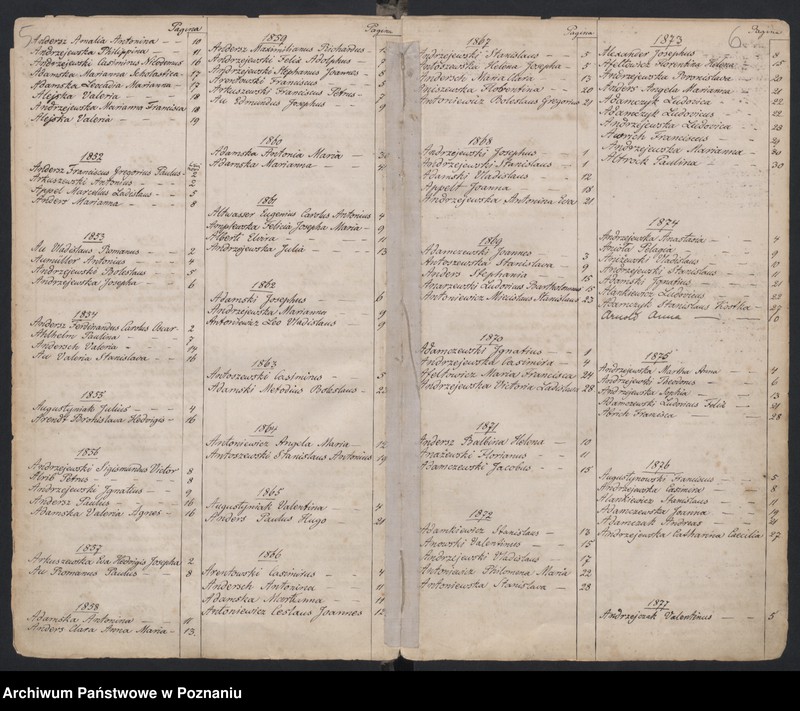 Pagina
Andersz Amalia Antonina - - 10
Andrzejewska Philippina - - 11
Andrzejewski Casimirus Nicodemus 16
Adamska Marianna Scholastica - 17
Adamska Leocadia Marianna - 17
Alejska Valeria - - 18
Andrzejewska Marianna Francisca 18
Alejska Valeria - - 19
1852
Andersz Franciscus Gregorius Paulus
Arkuszewski Antonius - -
Appel Marcellus Ladislaus - 5
Anders Marianna - - 8
1853
Au Vladislaus Romanus - 2
Aumüller Antonius - - 4
Andrzejewski Boleslaus - 5
Andrzejewska Josepha - 6
1854
Andersz Ferdinandus Carolus Oscar - 2
Ahlhelm Paulina - - 7
Andersch Valeria - - 14
Au Valeria Stanislava - - 16
1855
Augustyniak Julius - - 4
Arendt Bronislava Hedvigis - 16
1856
Andrzejewski Sigismundus Victor 8
Alrib Petrus - - 8
Andrzejewski Ignatius - 9
Andersz Paulus - - 16
Adamska Valeria Agnes - 16
1857
Arkuszewska Eva Hedvigis Josepha 2
Au Romanus Paulus - - 8
1858
Adamska Antonina - - 11
Anders Clara Anna Maria - 13
Pagina
1859
Andersz Maximilianus Richardus -
Andrzejewski Felix Adolphus -
Andrzejewski Stephanus Joannes 8
Arentowski Franciscus - 5
Arkuszewski Franciscus Petrus - 7
Au Edmundus Josephus - 9
1860
Adamska Antonia Maria -
Adamska Marianna - -
1861
Altwasser Eugenius Carolus Antonius 4
Felicia Josepha Maria - 9
Alberti Elvira - - 11
Andrzejewska Julia - - 13
1862
Adamski Josephus - 6
Andrzejewska Marianna 9
Antoniewicz Leo Vladislaus - 9
1863
Antoszewski Casimirus - 5
Adamski Metodius Boleslaus - 23
1864
Antoniewicz Angela Maria - 12
Antoszewski Stanislaus Antonius 19
1865
Augustyniak Valentina - 4
Anders Paulus Hugo - 21
1866
Arentowski Casimirus - - 4
Andersch Antonina - - 11
Adamska Marianna - - 11
Antoniewicz Ceslaus Joannes - 12
Pagina
1867
Andrzejewski Stanislaus - 5
Antoszewska Helena Josepha - 5
Andersch Maria Clara - 13
Anieszewska Florentina - 20
Antoniewicz Boleslaus Gregorius 21
1868
Andrzejewski Josephus - 1
Andrzejewski Stanislaus - 1
Adamski Vladislaus - 12
Appelt Joanna - - 18
Andrzejewska Antonina Eva 21
1869
Adamczewski Joannes - 3
Antoszewska Stanislava - 9
Anders Stephania - 15
Anarzewski Ludovicus Bartholomaeus 15
Antoniewicz Miecislaus Stanislaus 23
1870
Adamczewski Ignatius - 1
Andrzejewska Casimira - 4
Afeltowicz Maria Francisca 24
Andrzejewska Victoria Ladislava 28
1871
Andersz Balbina Helena - 10
Anażewski Florianus - 11
Adamczewski Jacobus - 15
1872
Adamkiewicz Stanislaus - 13
Anowski Valentinus - - 15
Andrzejewski Vladislaus - 17
Antoniewicz Philomena Maria 22
Antoniewska Stanislava - 28
Pagina
1873
Alexander Josephus - - 8
Afeltowicz Florentina Helena - 15
Andrzejewska Bronislava - 20
Anders Angela Marianna - 21
Adamczyk Ludovica - - 22
Adamczyk Ludovicus - - 22
Andrzejewska Ludovica - - 28
Aurich Franciscus - - 29
Andrzejewska Marianna - 30
Albrock Paulina - - 30
1874
Andrzejewska Anastasia - 4
Anioła Pelagia - - 9
Anizewski Vladislaus - 9
Andrzejewski Stanislaus - 11
Adamski Ignatius - - 21
Alankiewicz Ludovicus - 22
Adamczyk Stanislaus Kostka - 27
Arnold Anna - - 10
1875
Andrzejewska Martha Anna - 4
Andrzejewski Theodorus - 6
Andrzejewska Sophia - - 13
Adamczewski Ludovicus Felix - 21
Abrich Francisca - - 28
1876
Augustynowski Franciscus - 5
Andrzejewska Casimira - 8
Alankiewicz Stanislaus - 11
Adamczewska Joanna - 19
Adamczak Andreas - 21
Andrzejewska Catharina Cæcilia 27
1877
Andrzejczak Valentinus - - 5
Archiwum Państwowe w Poznaniu